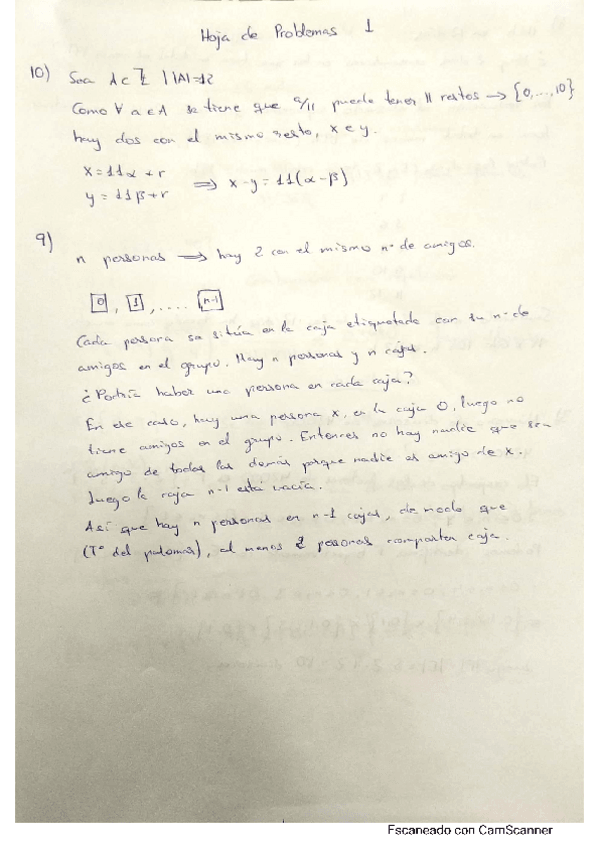 Hoja de Problemas 1
10) Sea A ⊂ ℤ | |A|=12
Como ∀ a ∈ A se tiene que a/11 puede tener 11 restos → {0,...,10}
hay dos con el mismo resto, x e y.
x=11α+r
y=11β+r ⇒ x-y=11(α-β)
9)
n personas ⇒ hay 2 con el mismo nº de amigos.
0, 1, .... n-1
Cada persona se sitúa en la caja etiquetada con su nº de
amigos en el grupo. Hay n personas y n cajas.
¿Podría haber una persona en cada caja?
En ese caso, hay una persona x, en la caja 0, luego no
tiene amigos en el grupo. Entonces no hay nadie que sea
amigo de todos los demás porque nadie es amigo de x.
Luego la caja n-1 está vacía.
Así que hay n personas en n-1 cajas, de modo que
(Tº del palomar), al menos 2 personas comparten caja.
Escaneado con CamScanner